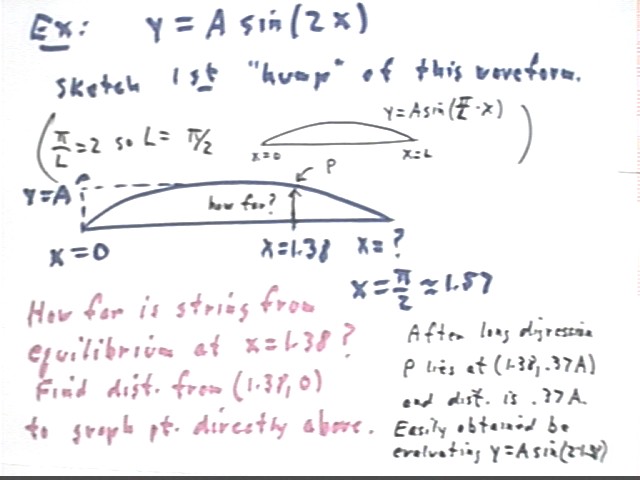 Ex: y = A sin(2x)
sketch 1st "hump" of this waveform.
(π/L = 2 so L = π/2
y = A sin(π/L · x))
x=0
x=L
P
y=A
how far?
x=0
x=1.38
x=?
x = π/2 ≈ 1.57
How far is string from
equilibrium at x=1.38?
Find dist. from (1.38, 0)
to graph pt. directly above.
After long digression
P lies at (1.38, .37A)
and dist. is .37A.
Easily obtained be
evaluating y=A sin(2·1.38)